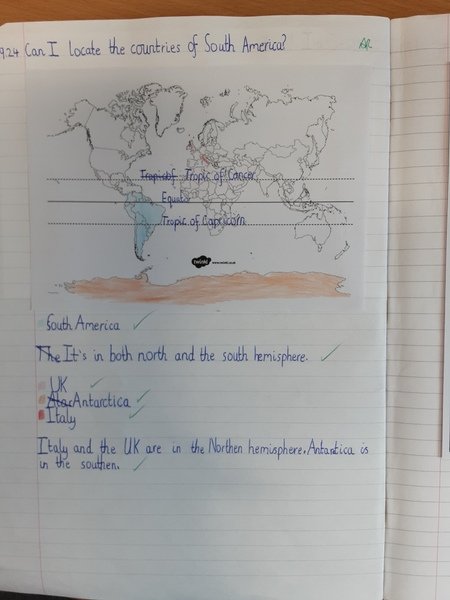 9.24 Can I locate the countries of South America?
AR
Trop of Tropic of Cancer
Equator
Tropic of Capricorn
twinkl www.twinkl.co.uk
South America
The It's in both north and the south hemisphere.
UK
Atac Antarctica
Italy
Italy and the UK are in the Northen hemisphere. Antartica is
in the southen.